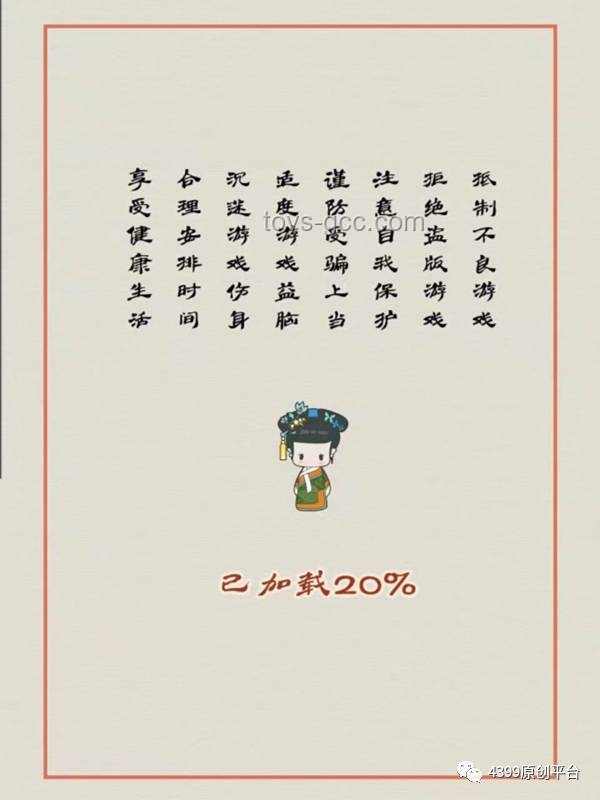 抵制不良游戏
拒绝盗版游戏
注意自我保护
谨防受骗上当
适度游戏益脑
沉迷游戏伤身
合理安排时间
享受健康生活
toys-gcc.com
已加载20%
4399原创平台